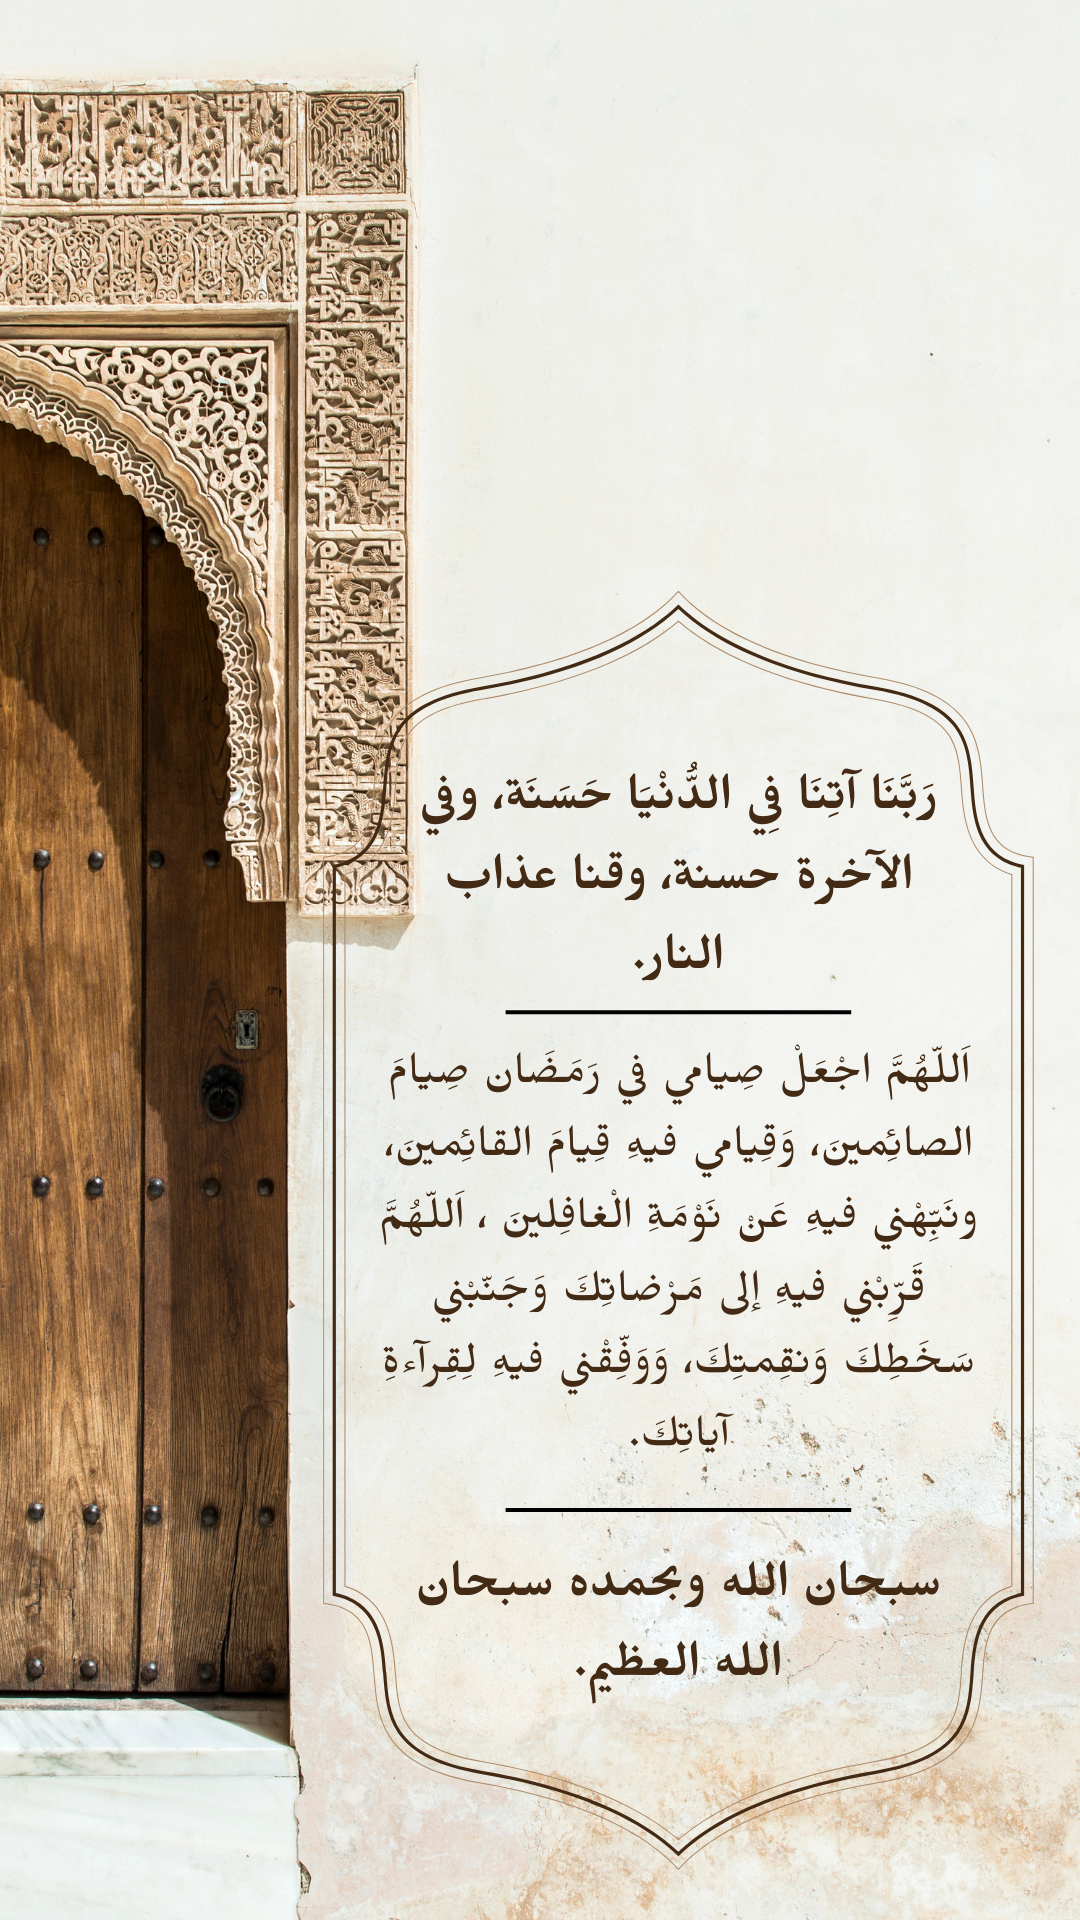 رَبَّنَا آتِنَا فِي الدُّنْيَا حَسَنَة، وفي
الآخرة حسنة، وقنا عذاب
النار.
اَللّهُمَّ اجْعَلْ صِيامي في رَمَضَان صِيامَ
الصائِمينَ، وَقِيامي فيهِ قِيامَ القائِمينَ،
ونَبِّهْني فيهِ عَنْ نَوْمَةِ الْغافِلينَ ، اَللّهُمَّ
قَرِّبْني فيهِ إلى مَرْضاتِكَ وَجَنّبْني
سَخَطِكَ وَنقِمتِكَ، وَوَفِّقْني فيهِ لِقِرآءةِ
آياتِكَ.
سبحان الله وبحمده سبحان
الله العظيم.